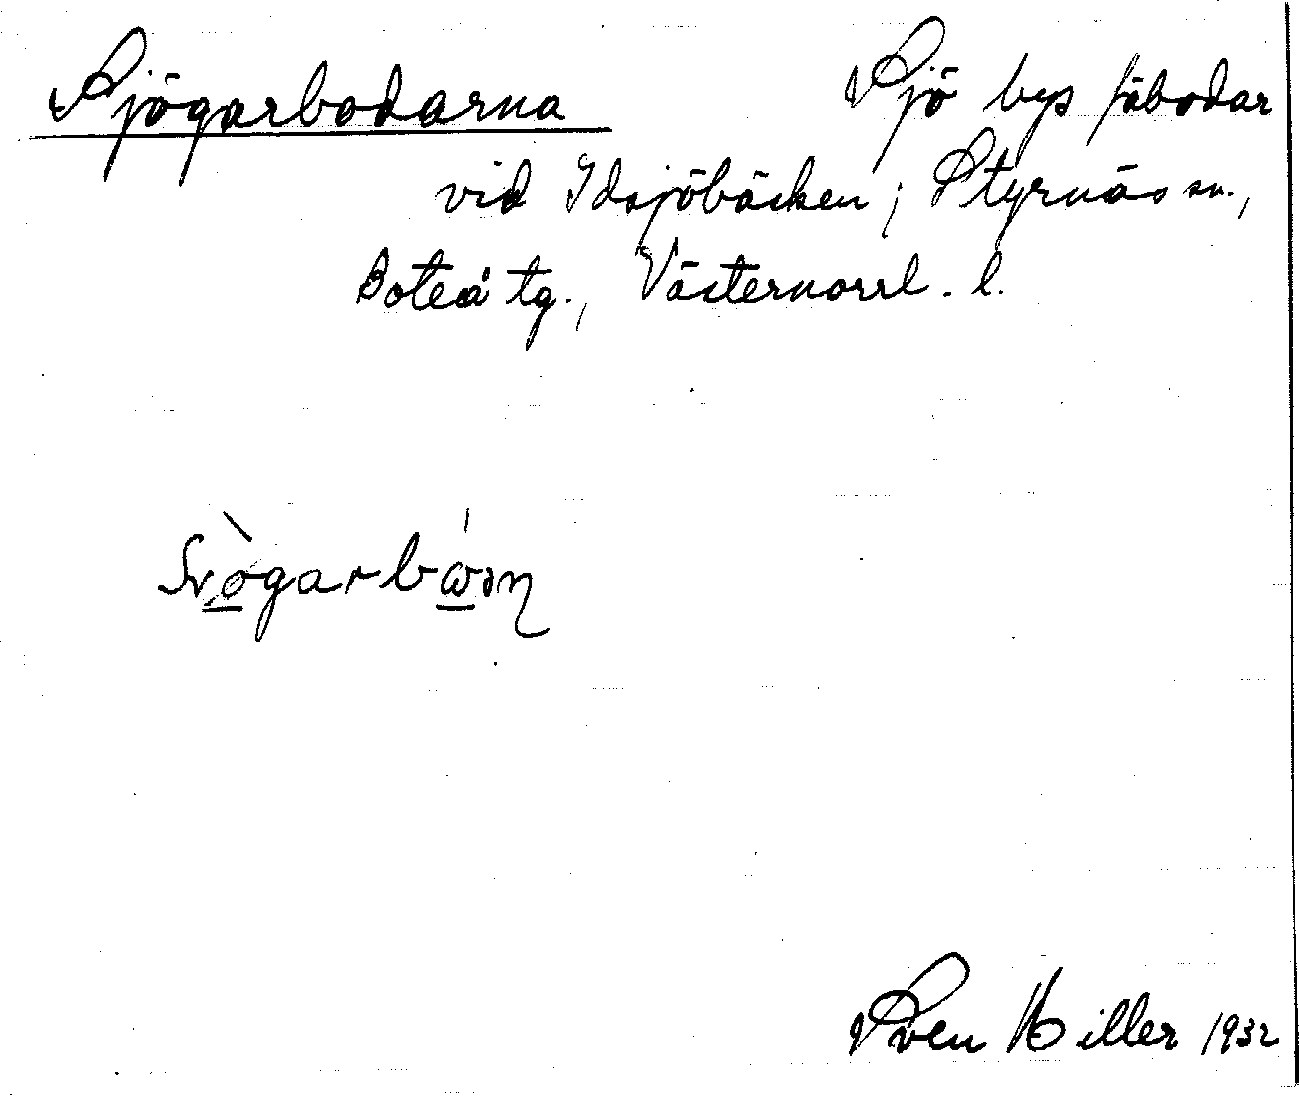 Sjögarbodarna Sjö bys fäbodar
vid Idsjöbäcken; Styrnäs sn.,
Boteå tg., Västernorrl. l.
Sven Hiller 1932